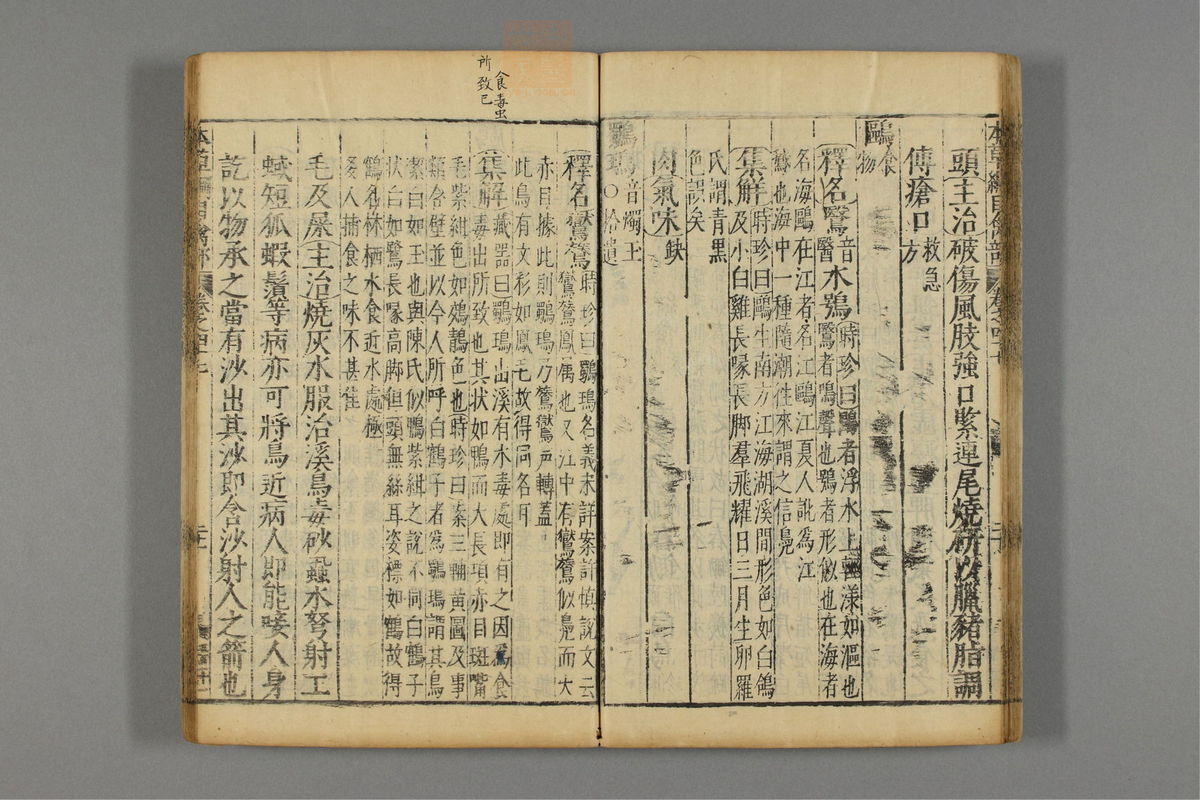 頭主治破傷風肢強口緊連尾燒研以臘豬脂調
傅瘡口救急方
鷗食物
釋名鷖音醫水鴞時珍曰鷗者浮水上輕漾如漚也
鷖者鳴聲也鴞者形似也在海者
名海鷗在江者名江鷗江夏人訛為江
鵝也海中一種隨潮往來謂之信鳧
集解時珍曰鷗生南方江海湖溪間形色如白鴿
及小白雞長喙長脚羣飛耀日三月生卵羅
氏謂青黑
色誤矣
肉氣味缺
鸀鳿音燭玉○拾遺
釋名鸑鷟時珍曰鸀鳿名義未詳案許慎說文云
鸑鷟鳳屬也又江中有鸑鷟似鳧而大
赤目據此則鸀鳿乃鷟鸑声轉蓋
此鳥有文彩如鳳毛故得同名耳
集解藏器曰鸀鳿出溪有水毒處即有之因為食
毒出所致也其状如鴨而大長項赤目斑嘴
毛紫紺色如鵁鶄色也時珍曰案三輔黃圖及事
類合璧並以今人所呼白鶴子者為鸀鳿謂其鳥
潔白如玉也與陳氏似鴨紫紺之說不同白鶴子
状白如鷺長喙高脚但頭無絲耳姿標如鶴故得
鶴名林栖水食近水處極
多人捕食之味不甚佳
毛及屎主治燒灰水服治溪鳥毒砂蝨水弩射工
蜮短狐蝦鬚等病亦可將鳥近病人即能唼人身
訖以物承之當有沙出其沙即含沙射人之箭也
食毒虫
所致已
本草綱目禽部
卷之四十七